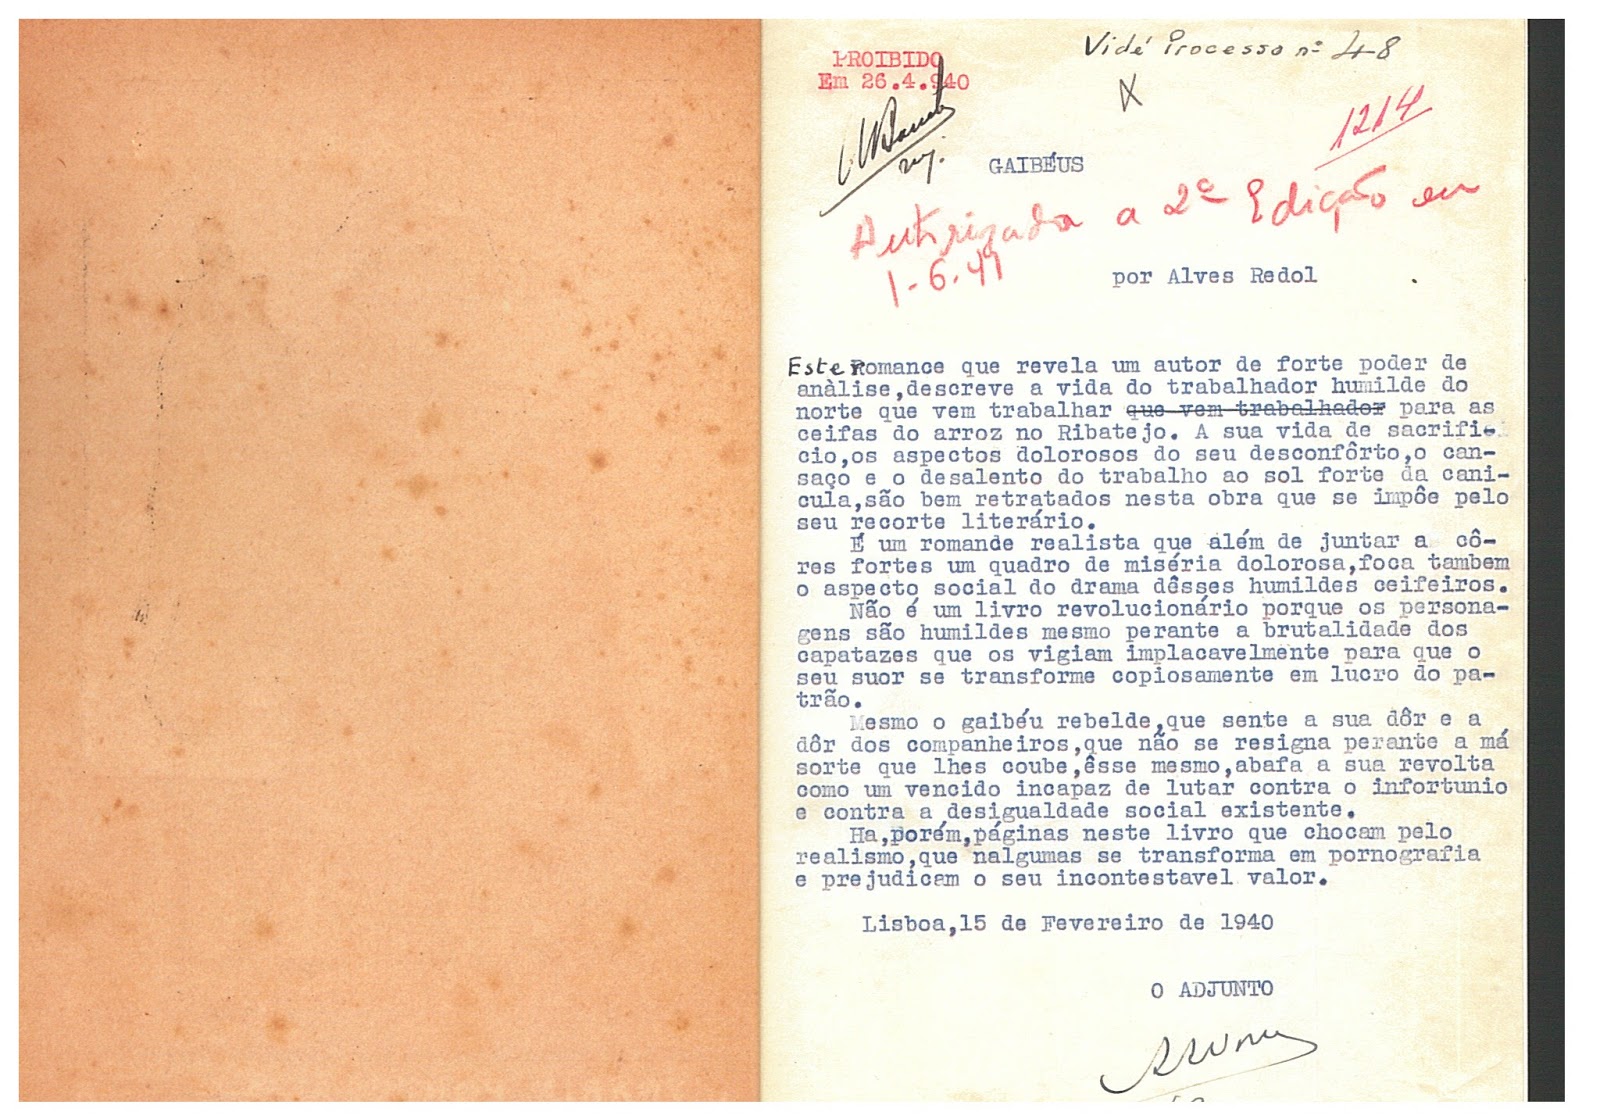 Vidé Processo nº 48
PROIBIDO
Em 26.4.940
1214
GAIBÉUS
Autorizada a 2ª Edição em
1-6-41
por Alves Redol
Este Romance que revela um autor de forte poder de
anàlise,descreve a vida do trabalhador humilde do
norte que vem trabalhar que vem trabalhador para as
ceifas do arroz no Ribatejo. A sua vida de sacrifi-
cio,os aspectos dolorosos do seu desconfôrto,o can-
saço e o desalento do trabalho ao sol forte da cani-
cula,são bem retratados nesta obra que se impõe pelo
seu recorte literário.
É um romande realista que além de juntar a cô-
res fortes um quadro de miséria dolorosa,foca tambem
o aspecto social do drama dêsses humildes ceifeiros.
Não é um livro revolucionário porque os persona-
gens são humildes mesmo perante a brutalidade dos
capatazes que os vigiam implacavelmente para que o
seu suor se transforme copiosamente em lucro do pa-
trão.
Mesmo o gaibéu rebelde,que sente a sua dôr e a
dôr dos companheiros,que não se resigna perante a má
sorte que lhes coube,êsse mesmo,abafa a sua revolta
como um vencido incapaz de lutar contra o infortunio
e contra a desigualdade social existente.
Ha,porém,páginas neste livro que chocam pelo
realismo,que nalgumas se transforma em pornografia
e prejudicam o seu incontestavel valor.
Lisboa,15 de Fevereiro de 1940
O ADJUNTO